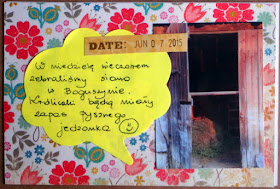 DATE: JUN 0-7 2015
W niedzielę wieczorem
zebraliśmy siano
w Boguszynie.
Króliczki będą miały
zapas pysznego
jedzonka ☺